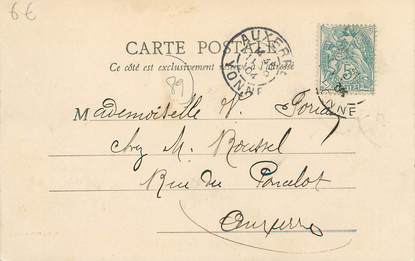 6€
CARTE POSTALE
Ce côté est exclusivement réservé à l'adresse
AUXERRE
04
YONNE
5c
89
Mademoiselle V.
chez M. Roussel
Rue du Poncelot
Auxerre